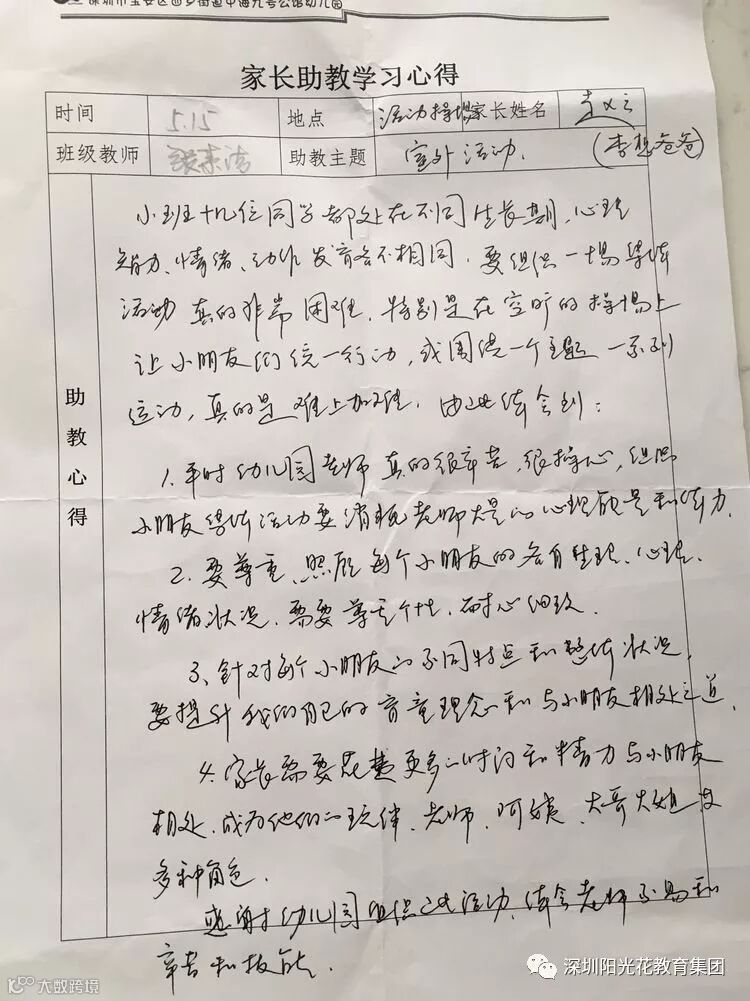 深圳市宝安区西乡街道中海九号公馆幼儿园
家长助教学习心得
时间 5.15 地点 活动操场 家长姓名
班级教师 助教主题 室外活动. (李想爸爸)
助教心得
小班十几位同学都处在不同生长期,心理
智力、情绪、动作发育各不相同.要组织一场集体
活动真的非常困难.特别是在空旷的操场上
让小朋友们统一行动,或围绕一个主题一系列
运动,真的是难上加难.由此体会到:
1.平时幼儿园老师真的很辛苦,很操心,组织
小朋友集体活动要消耗老师大量的心理能量和体力.
2.要尊重、照顾每个小朋友的各自生理、心理、
情绪状况.需要尊重个性.耐心细致.
3、针对每个小朋友的不同特点和整体状况,
要提升我们自己的育童理念和与小朋友相处之道.
4.家长需要花费更多的时间和精力与小朋友
相处.成为他们的玩伴、老师、阿姨、大哥大姐及
多种角色.
感谢幼儿园组织此活动,体会老师不易和
辛苦和技能.
大数跨境
深圳阳光花教育集团